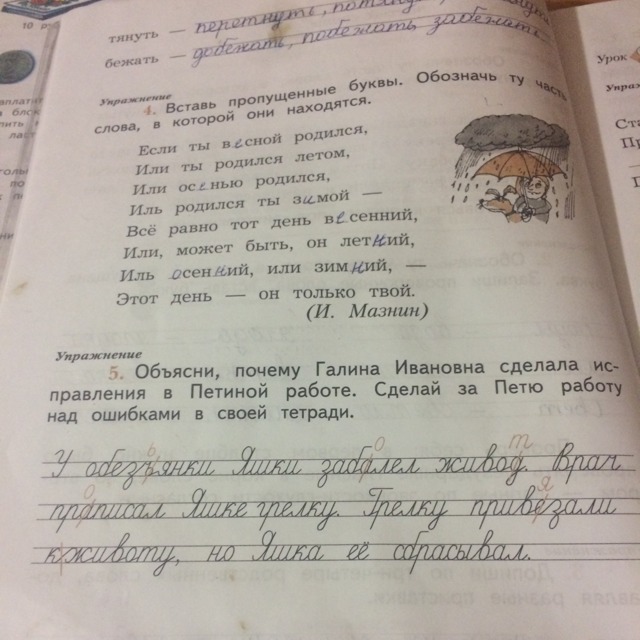 тянуть — перетянуть,
бежать — добежать, побежать, забежать
Упражнение
4. Вставь пропущенные буквы. Обозначь ту часть
слова, в которой они находятся.
Если ты весной родился,
Или ты родился летом,
Или осенью родился,
Иль родился ты зимой —
Всё равно тот день весенний,
Или, может быть, он летний,
Иль осенний, или зимний, —
Этот день — он только твой.
(И. Мазнин)
Урок
Упражнение
5. Объясни, почему Галина Ивановна сделала ис-
правления в Петиной работе. Сделай за Петю работу
над ошибками в своей тетради.
ь о т
У обезъянки Яшки забалел живод. Врач
о я
праписал Яшке грелку. Грелку привезали
к животу, но Яшка её сбрасывал.